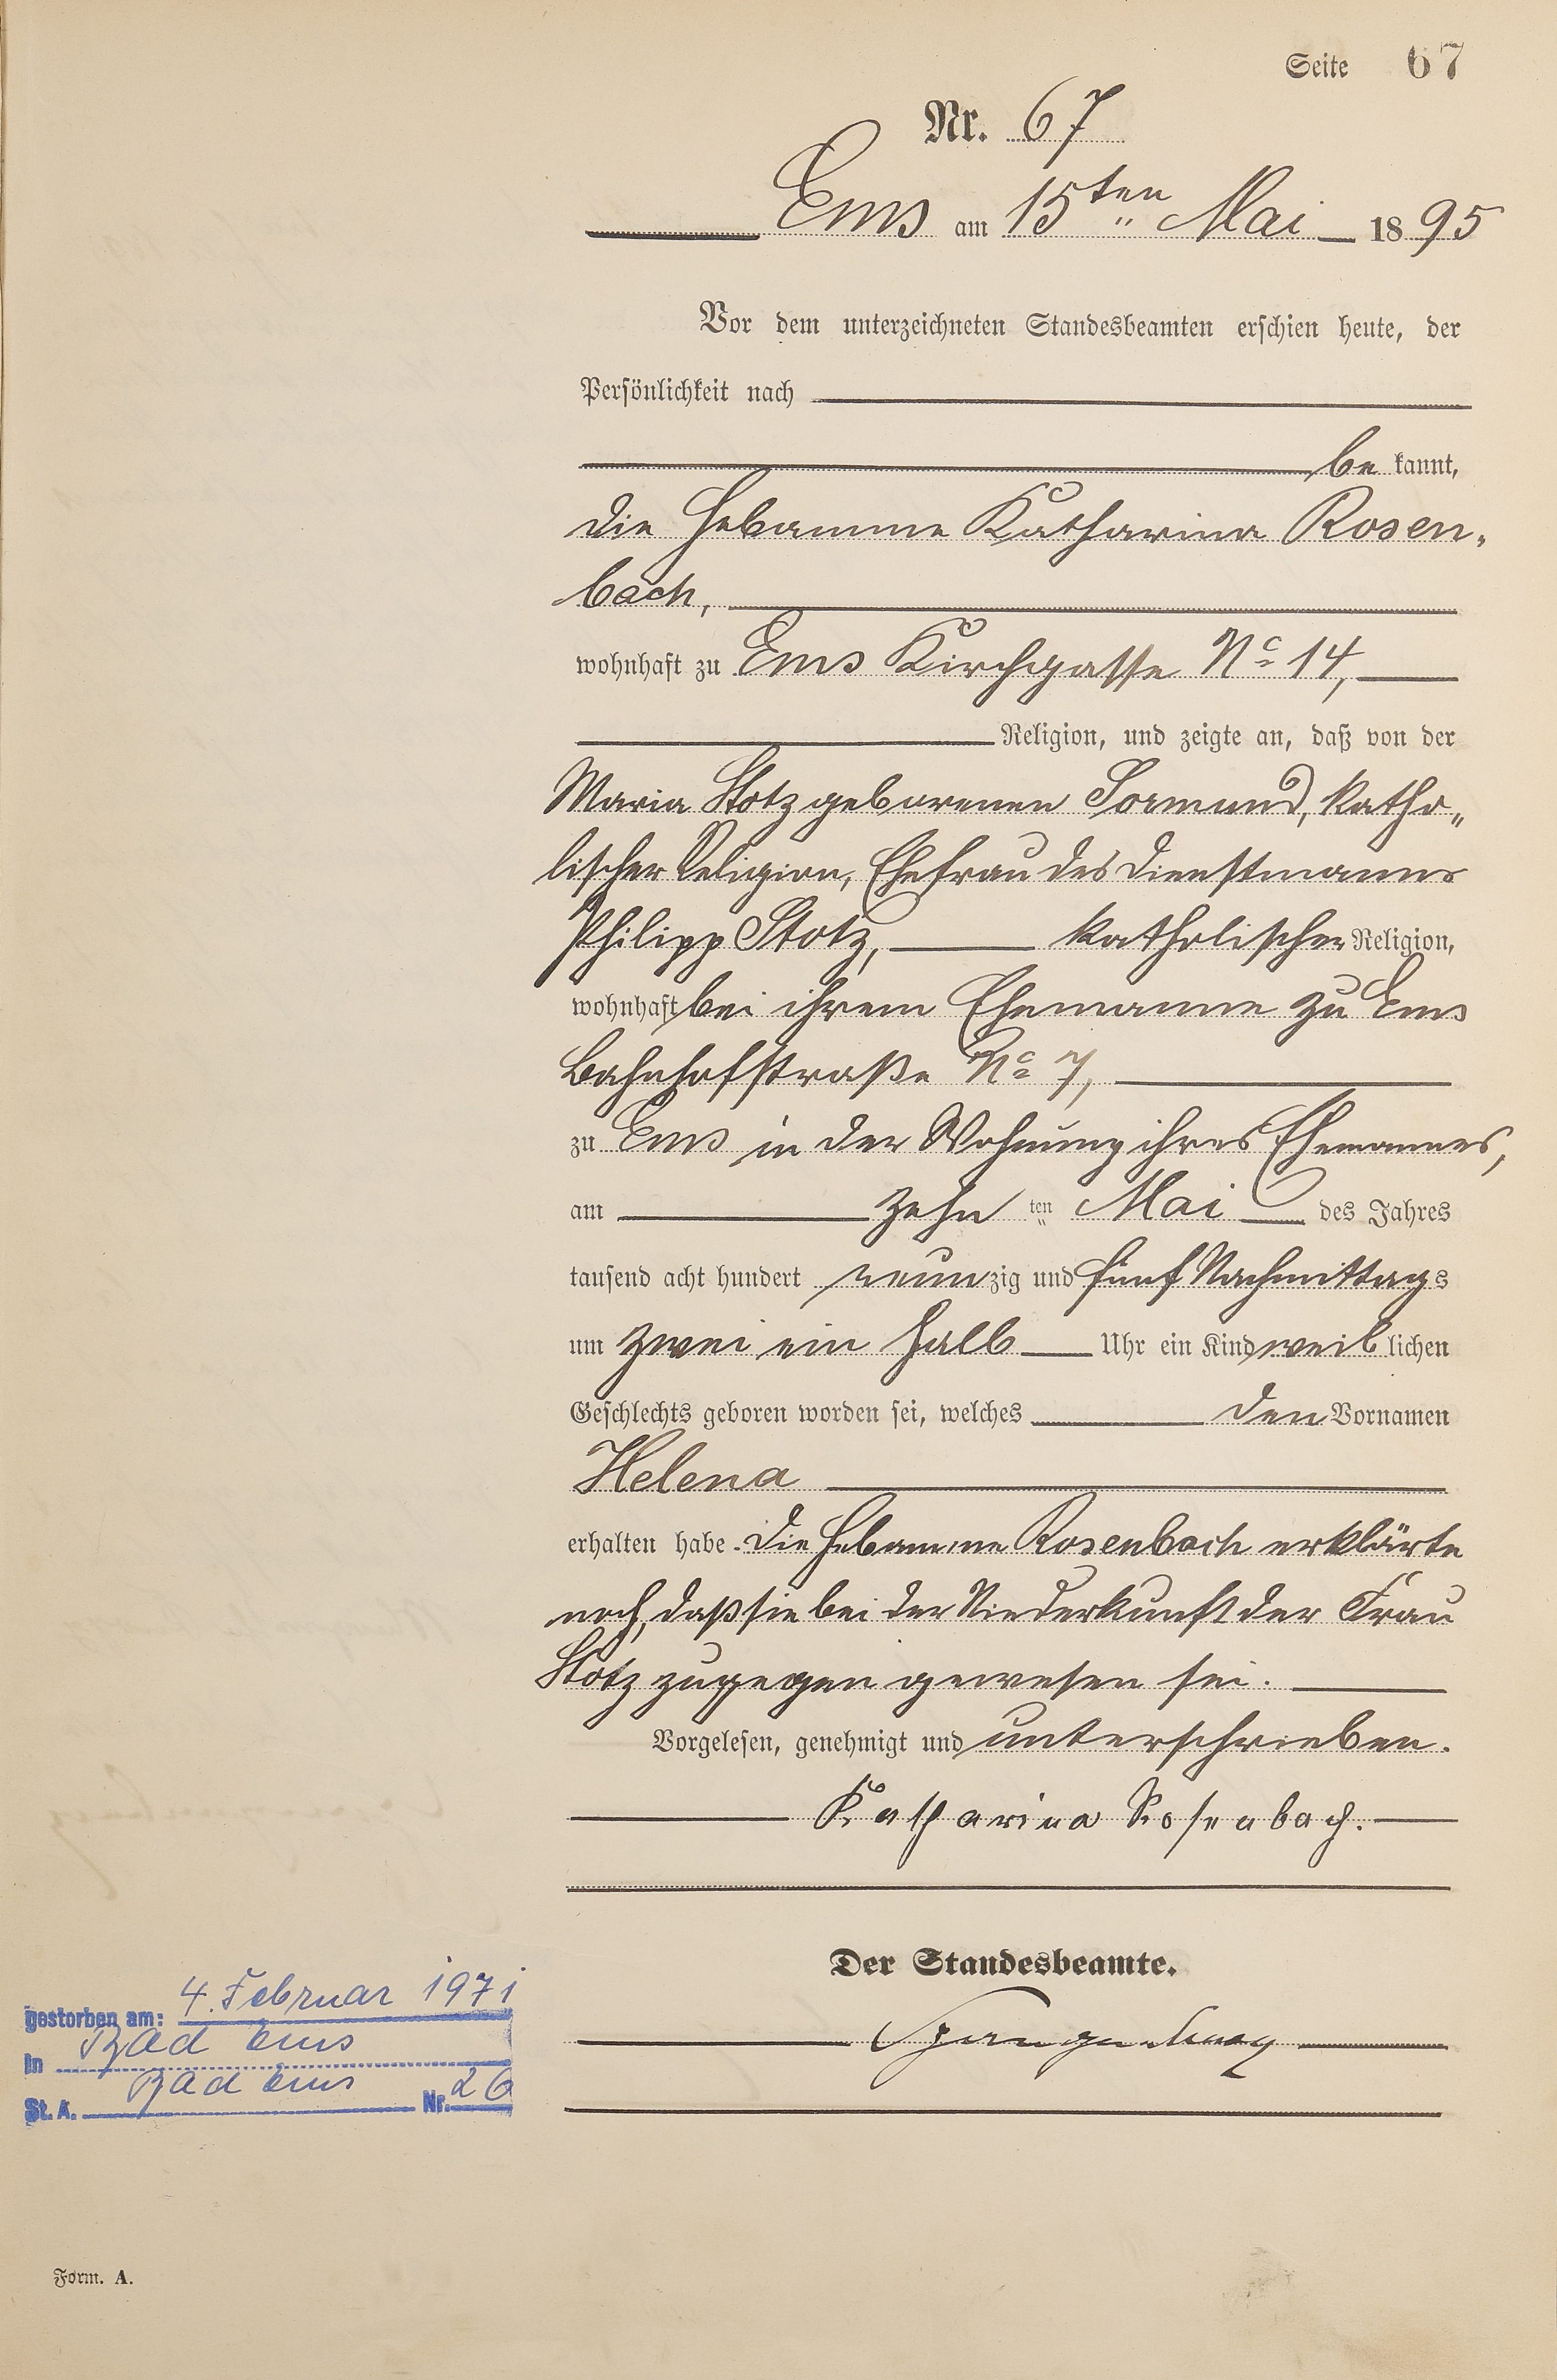 Seite 67
Nr. 67
Ems am 15ten Mai 1895
Vor dem unterzeichneten Standesbeamten erschien heute, der
Persönlichkeit nach
be kannt,
die Hebamme Katharina Rosen-
bach,
wohnhaft zu Ems Kirchgasse No 14,
Religion, und zeigte an, daß von der
Maria Stotz geborenen Sormund, katho-
lischer Religion, Ehefrau des Dienstmanns
Philipp Stotz, katholischer Religion,
wohnhaft bei ihrem Ehemanne zu Ems
Bahnhofstraße No 7,
zu Ems in der Wohnung ihres Ehemannes,
am zehn ten Mai des Jahres
tausend acht hundert neunzig und fünf Nachmittags
um zwei ein halb Uhr ein Kind weiblichen
Geschlechts geboren worden sei, welches den Vornamen
Helena
erhalten habe. Die Hebamme Rosenbach erklärte
noch, daß sie bei der Niederkunft der Frau
Stotz zugegen gewesen sei.
Vorgelesen, genehmigt und unterschrieben.
Katharina Rosenbach.
Der Standesbeamte.
gestorben am: 4. Februar 1971
in Bad Ems
St. A. Bad Ems Nr. 26
Form. A.